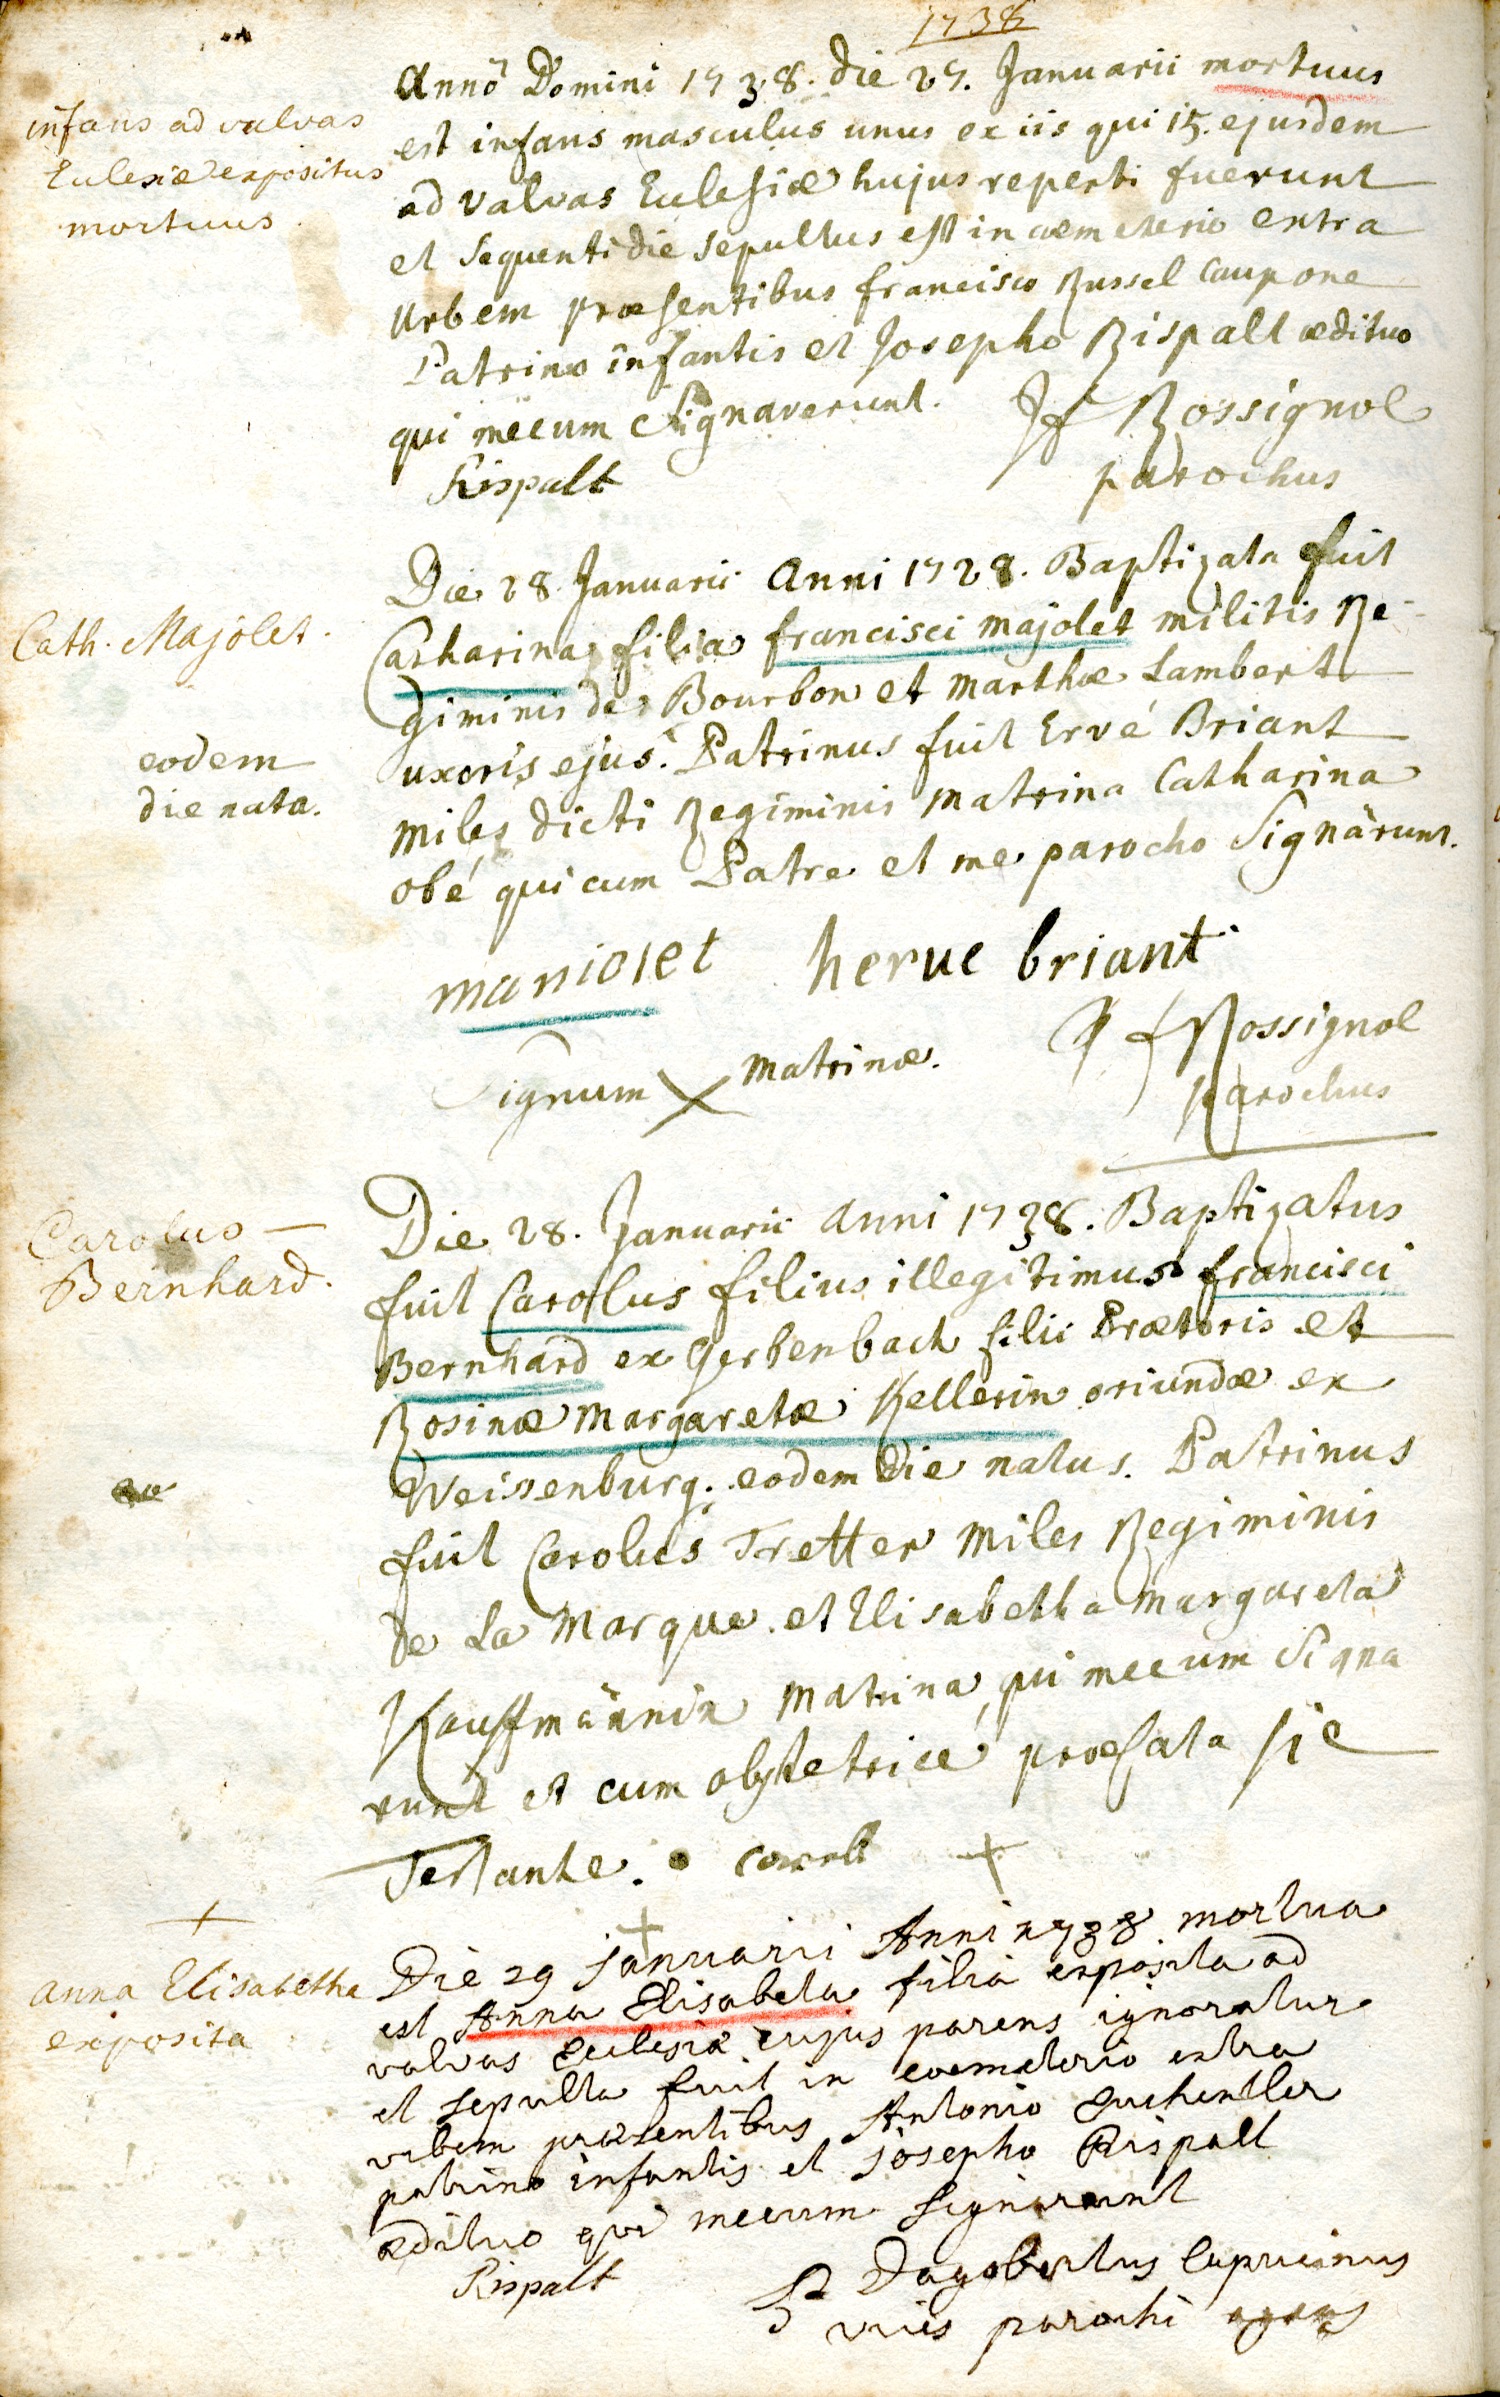 1738
Anno Domini 1738. die 27. Januarii mortuus
infans ad valvas
Eclesiæ expositus
mortuus.
est infans masculus unus ex iis qui 15. ejusdem
ad valvas Eclesiæ hujus reperti fuerunt
et sequenti die sepultus est in cæmeterio extra
urbem præsentibus francisco Russel caupone
Patrino infantis et Josepho Rispalt ædituo
qui mecum signaverunt. Jf Rossignol
Rispalt parochus
Die 28. Januarii Anni 1728. Baptizata fuit
Cath. Majolet.
Catharina filia francisci majolet militis Re-
giminis de Bourbon et Marthæ Lambert
eodem
die nata.
uxoris ejus. Patrinus fuit Ervé Briant
miles dicti Regiminis matrina Catharina
obé qui cum Patre et me parocho signârunt.
maniolet herue briant
Jf Rossignol
Signum X Matrinæ.
parochus
Carolus –
Bernhard.
Die 28. Januarii anni 1738. Baptizatus
fuit Carolus filius illegitimus francisci
Bernhard ex Gerbenbach filii Prætoris et
Rosinæ Margaretæ Kellerin oriundæ ex
Weissenburg. eodem die natus. Patrinus
fuit Carolus Tretter Miles Regiminis
de La Marque. et Elisabetha Margareta
Kauffmännin Matrina, qui mecum signa
runt et cum obstetrice præfata sic
Testante. +
+
+
Anna Elisabetha
exposita
Die 29 januarii Anni 1738 mortua
est Anna Elisabeta filia exposita ad
valvas Eclesiæ cujus parens ignoratur
et sepulta fuit in coemeterio extra
urbem præsentibus Antonio
patrino infantis et josepho Rispalt
ædituo qui mecum signarunt
Rispalt
Dagobertus Capucinus
vices parochi agens